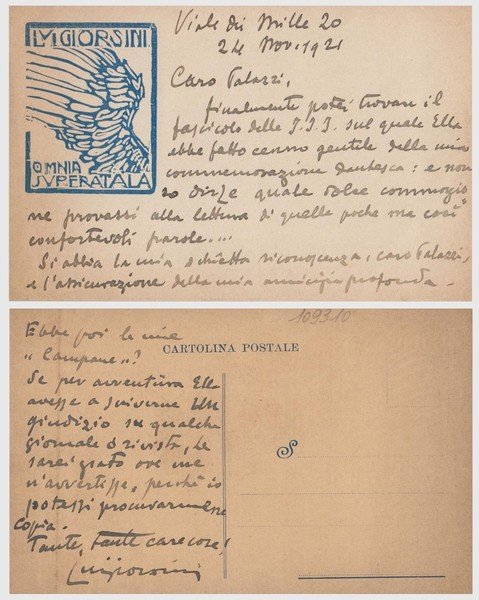 LVIGI ORSINI
OMNIA
SVPERAT ALA
Viale dei Mille 20
24 Nov. 1921
Caro Palazzi,
finalmente potei trovare il
fascicolo delle I.I.I. sul quale Ella
ebbe fatto cenno gentile della mia
commemorazione dantesca: e non
so dirLe quale dolce commozio
ne provassi alla lettura di quelle poche ma così
confortevoli parole....
Si abbia la mia schietta riconoscenza, caro Palazzi,
e l'assicurazione della mia amicizia profonda.
109310
CARTOLINA POSTALE
Ebbe poi le mie
"Campane"?
Se per avventura Ella
avesse a scriverne un
giudizio su qualche
giornale o rivista, Le
sarei grato ove me
n'avvertisse, perchè io
potessi procurarmene
copia.
Tante, tante care cose!
Luigi Orsini